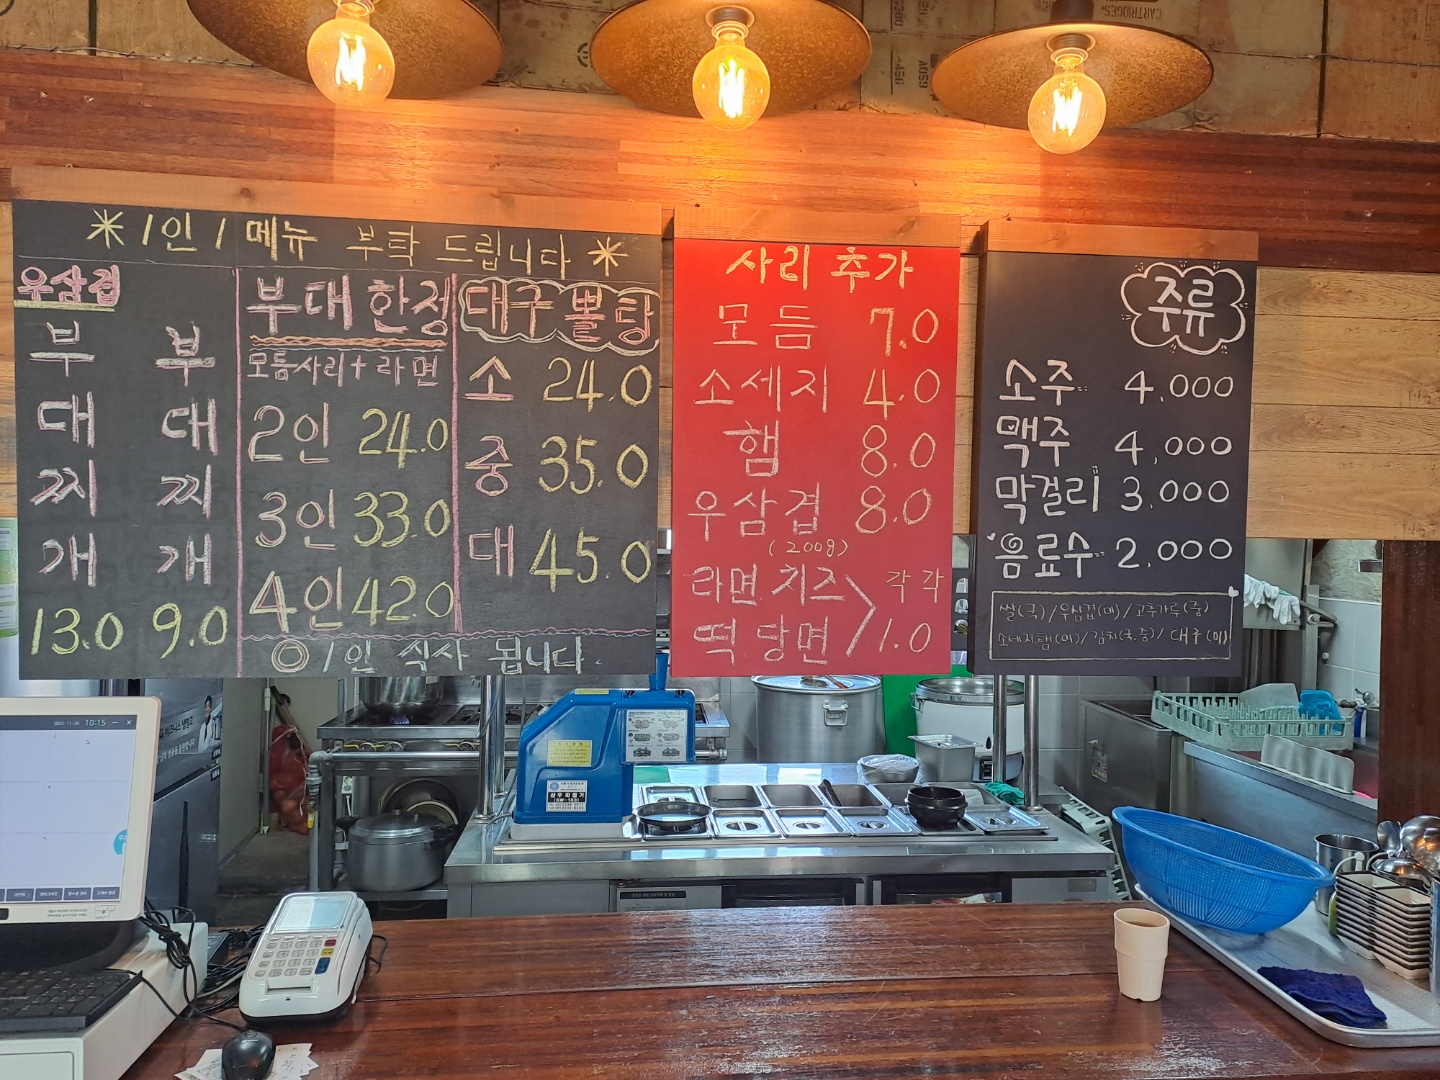 *1인 1 메뉴 부탁 드립니다*
우삼겹
부대찌개 13.0
부대찌개 9.0
부대 한정
모듬사리+라면
2인 24.0
3인 33.0
4인 42.0
대구 뽈탕
소 24.0
중 35.0
대 45.0
◎ 1인 식사 됩니다.
사리 추가
모듬 7.0
소세지 4.0
햄 8.0
우삼겹 8.0
(200g)
라면 치즈 각각
떡 당면 1.0
주류
소주 4,000
맥주 4,000
막걸리 3,000
음료수 2,000
쌀(국)/우삼겹(미)/고추가루(중)
소세지햄(미)/김치(국,중)/대구(미)
10:15